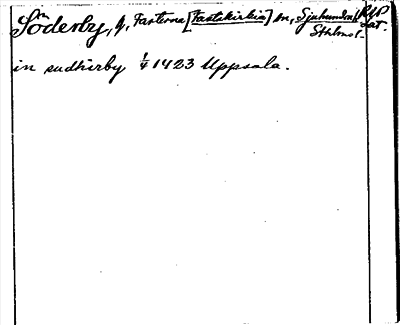 Söderby, g, Fasterna [Fastakirkia] sn, Sjuhundra
Sthlms l. Lat.
in sudhirby 1/4 1423 Uppsala.